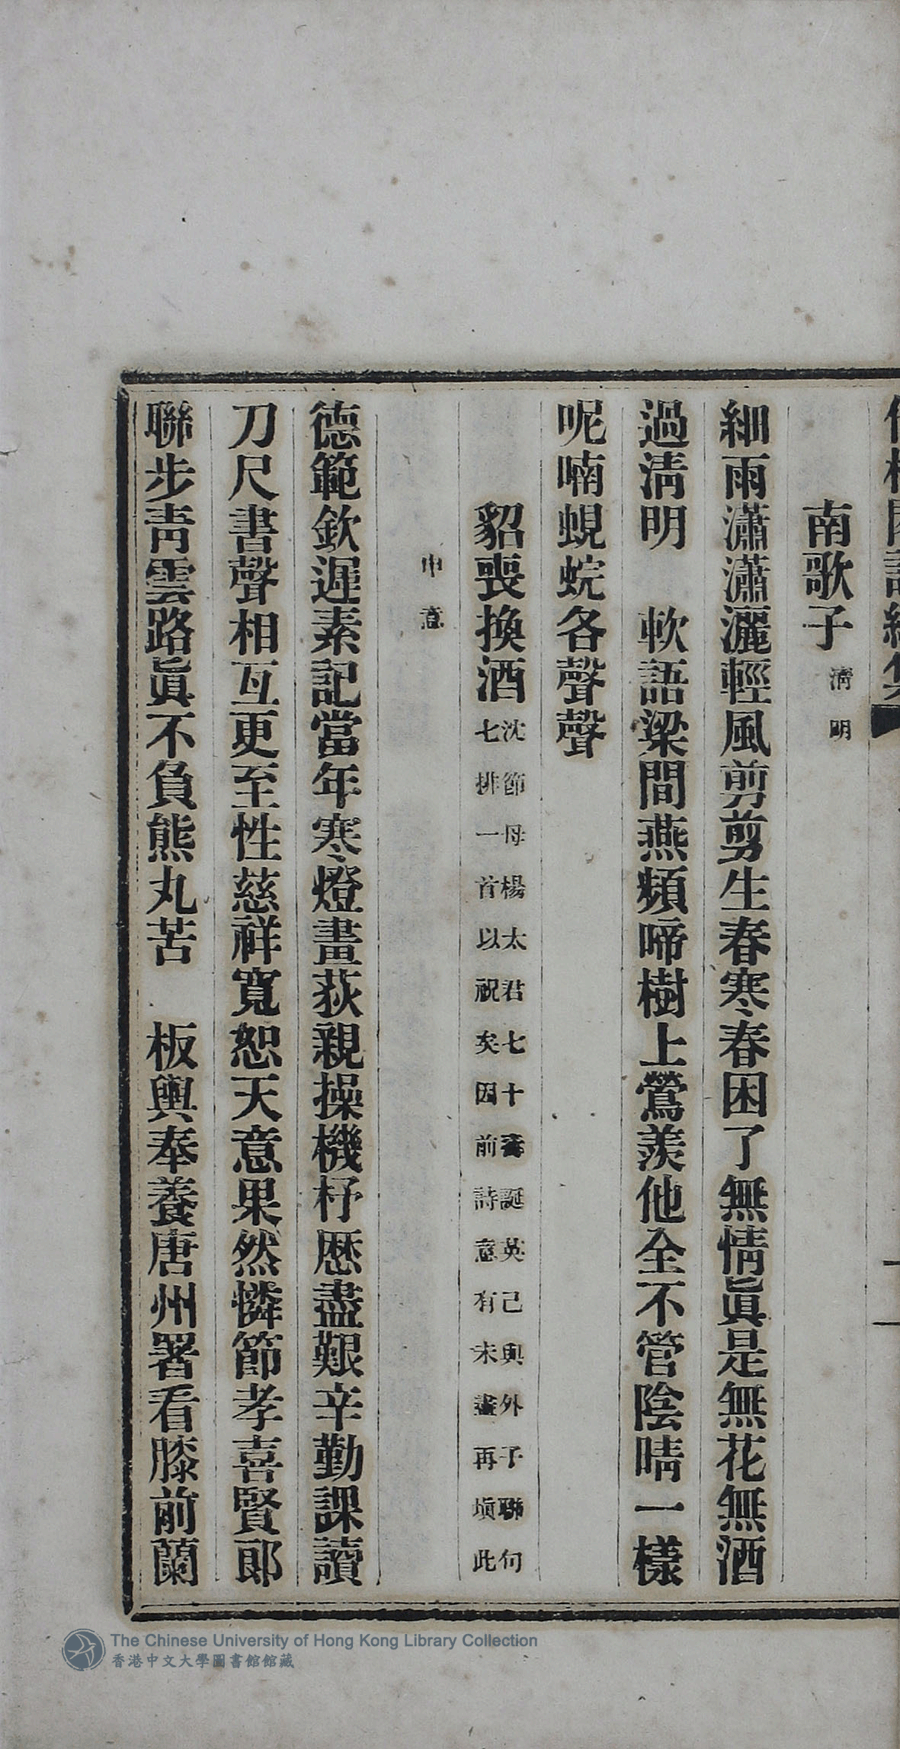 南歌子 清明
細雨瀟瀟灑輕風剪剪生春寒春困了無情眞是無花無酒
過淸明　軟語梁間燕頻啼樹上鶯羨他全不管陰晴一樣
呢喃蜆蜿各聲聲
貂裘換酒 沈節母楊太君七十壽誕英己與外子聯句
七排一首以祝矣因前詩意有未盡再塡此
申意
德範欽遲素記當年寒燈畫荻親操機杼歴盡艱辛勤課讀
刀尺書聲相互更至性慈祥寬恕天意果然憐節孝喜賢郎
聯步靑雲路眞不負熊丸苦　板輿奉養唐州署看膝前蘭
The Chinese University of Hong Kong Library Collection
香港中文大學圖書館館藏